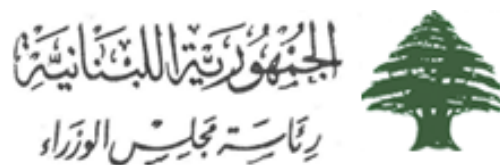 الجُمْهُورِيَّةُ اللبْنَانِيَّة
رِئَاسَة مَجْلِس الوُزَرَاء